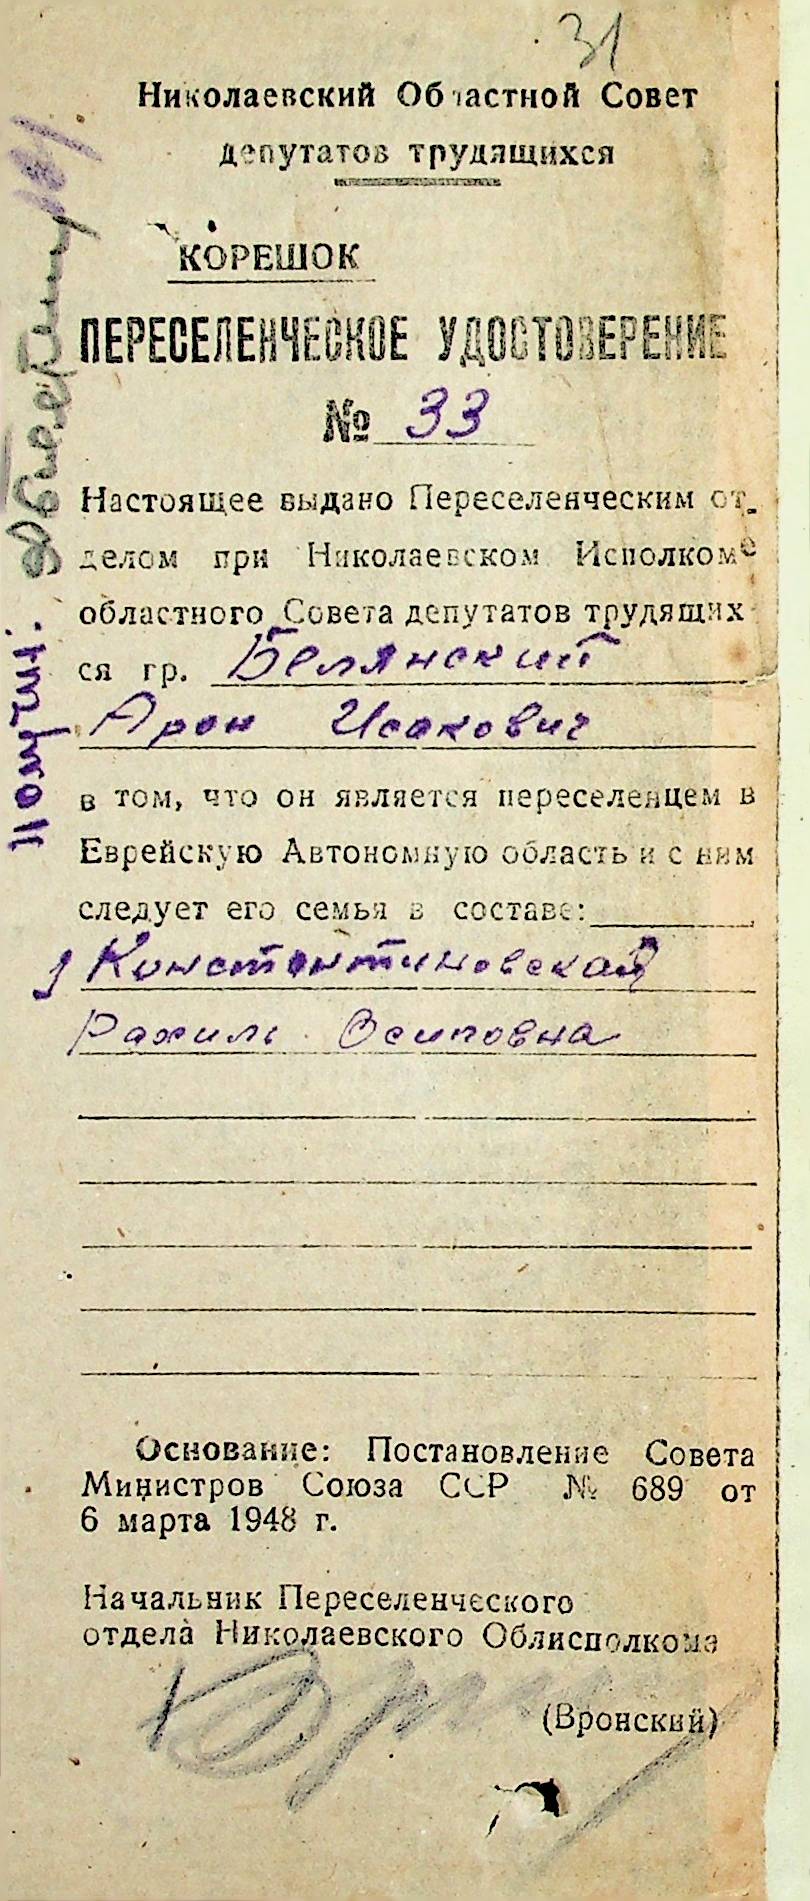 31
Николаевский Областной Совет
депутатов трудящихся
КОРЕШОК
ПЕРЕСЕЛЕНЧЕСКОЕ УДОСТОВЕРЕНИЕ
№ 33
Настоящее выдано Переселенческим от-
делом при Николаевском Исполкоме
областного Совета депутатов трудящих
ся гр. Белянский
Арон Исакович
в том, что он является переселенцем в
Еврейскую Автономную область и с ним
следует его семья в составе:
1 Константиновская
Рахиль Осиповна
Основание: Постановление Совета
Министров Союза ССР № 689 от
6 марта 1948 г.
Начальник Переселенческого
отдела Николаевского Облисполкома
(Вронский)
Получил: